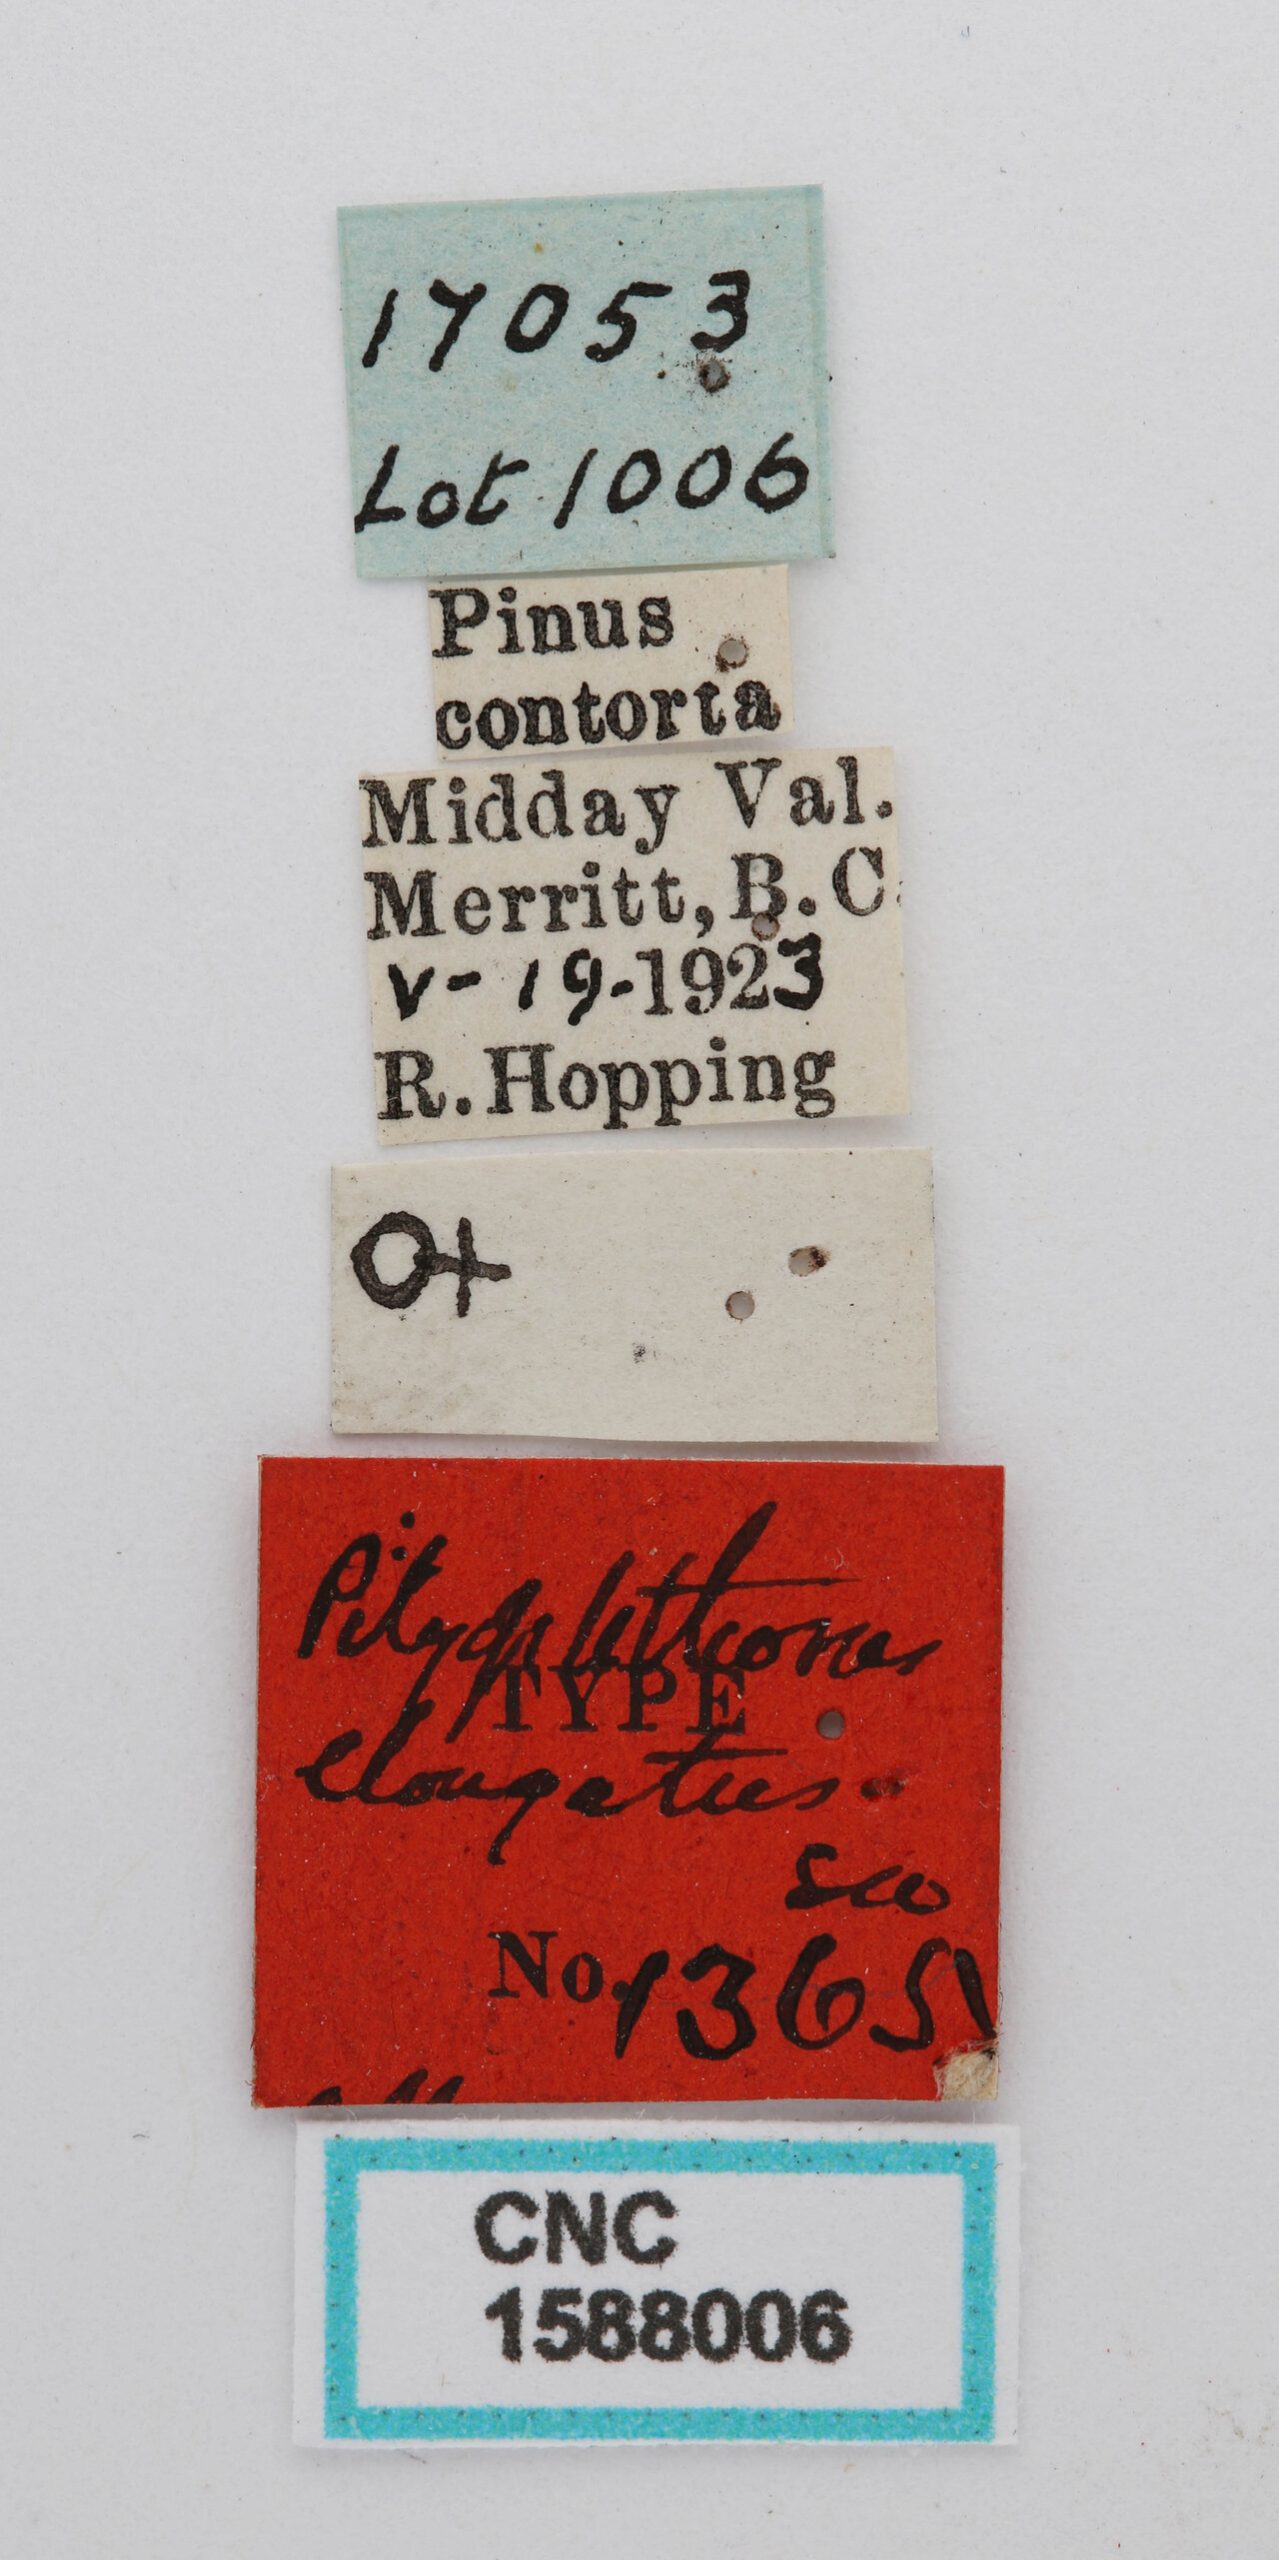 17053
Lot 1006
Pinus
contorta
Midday Val.
Merritt, B.C.
V-19-1923
R. Hopping
♀
TYPE
elongatus
Sw
No. 13651
CNC
1588006